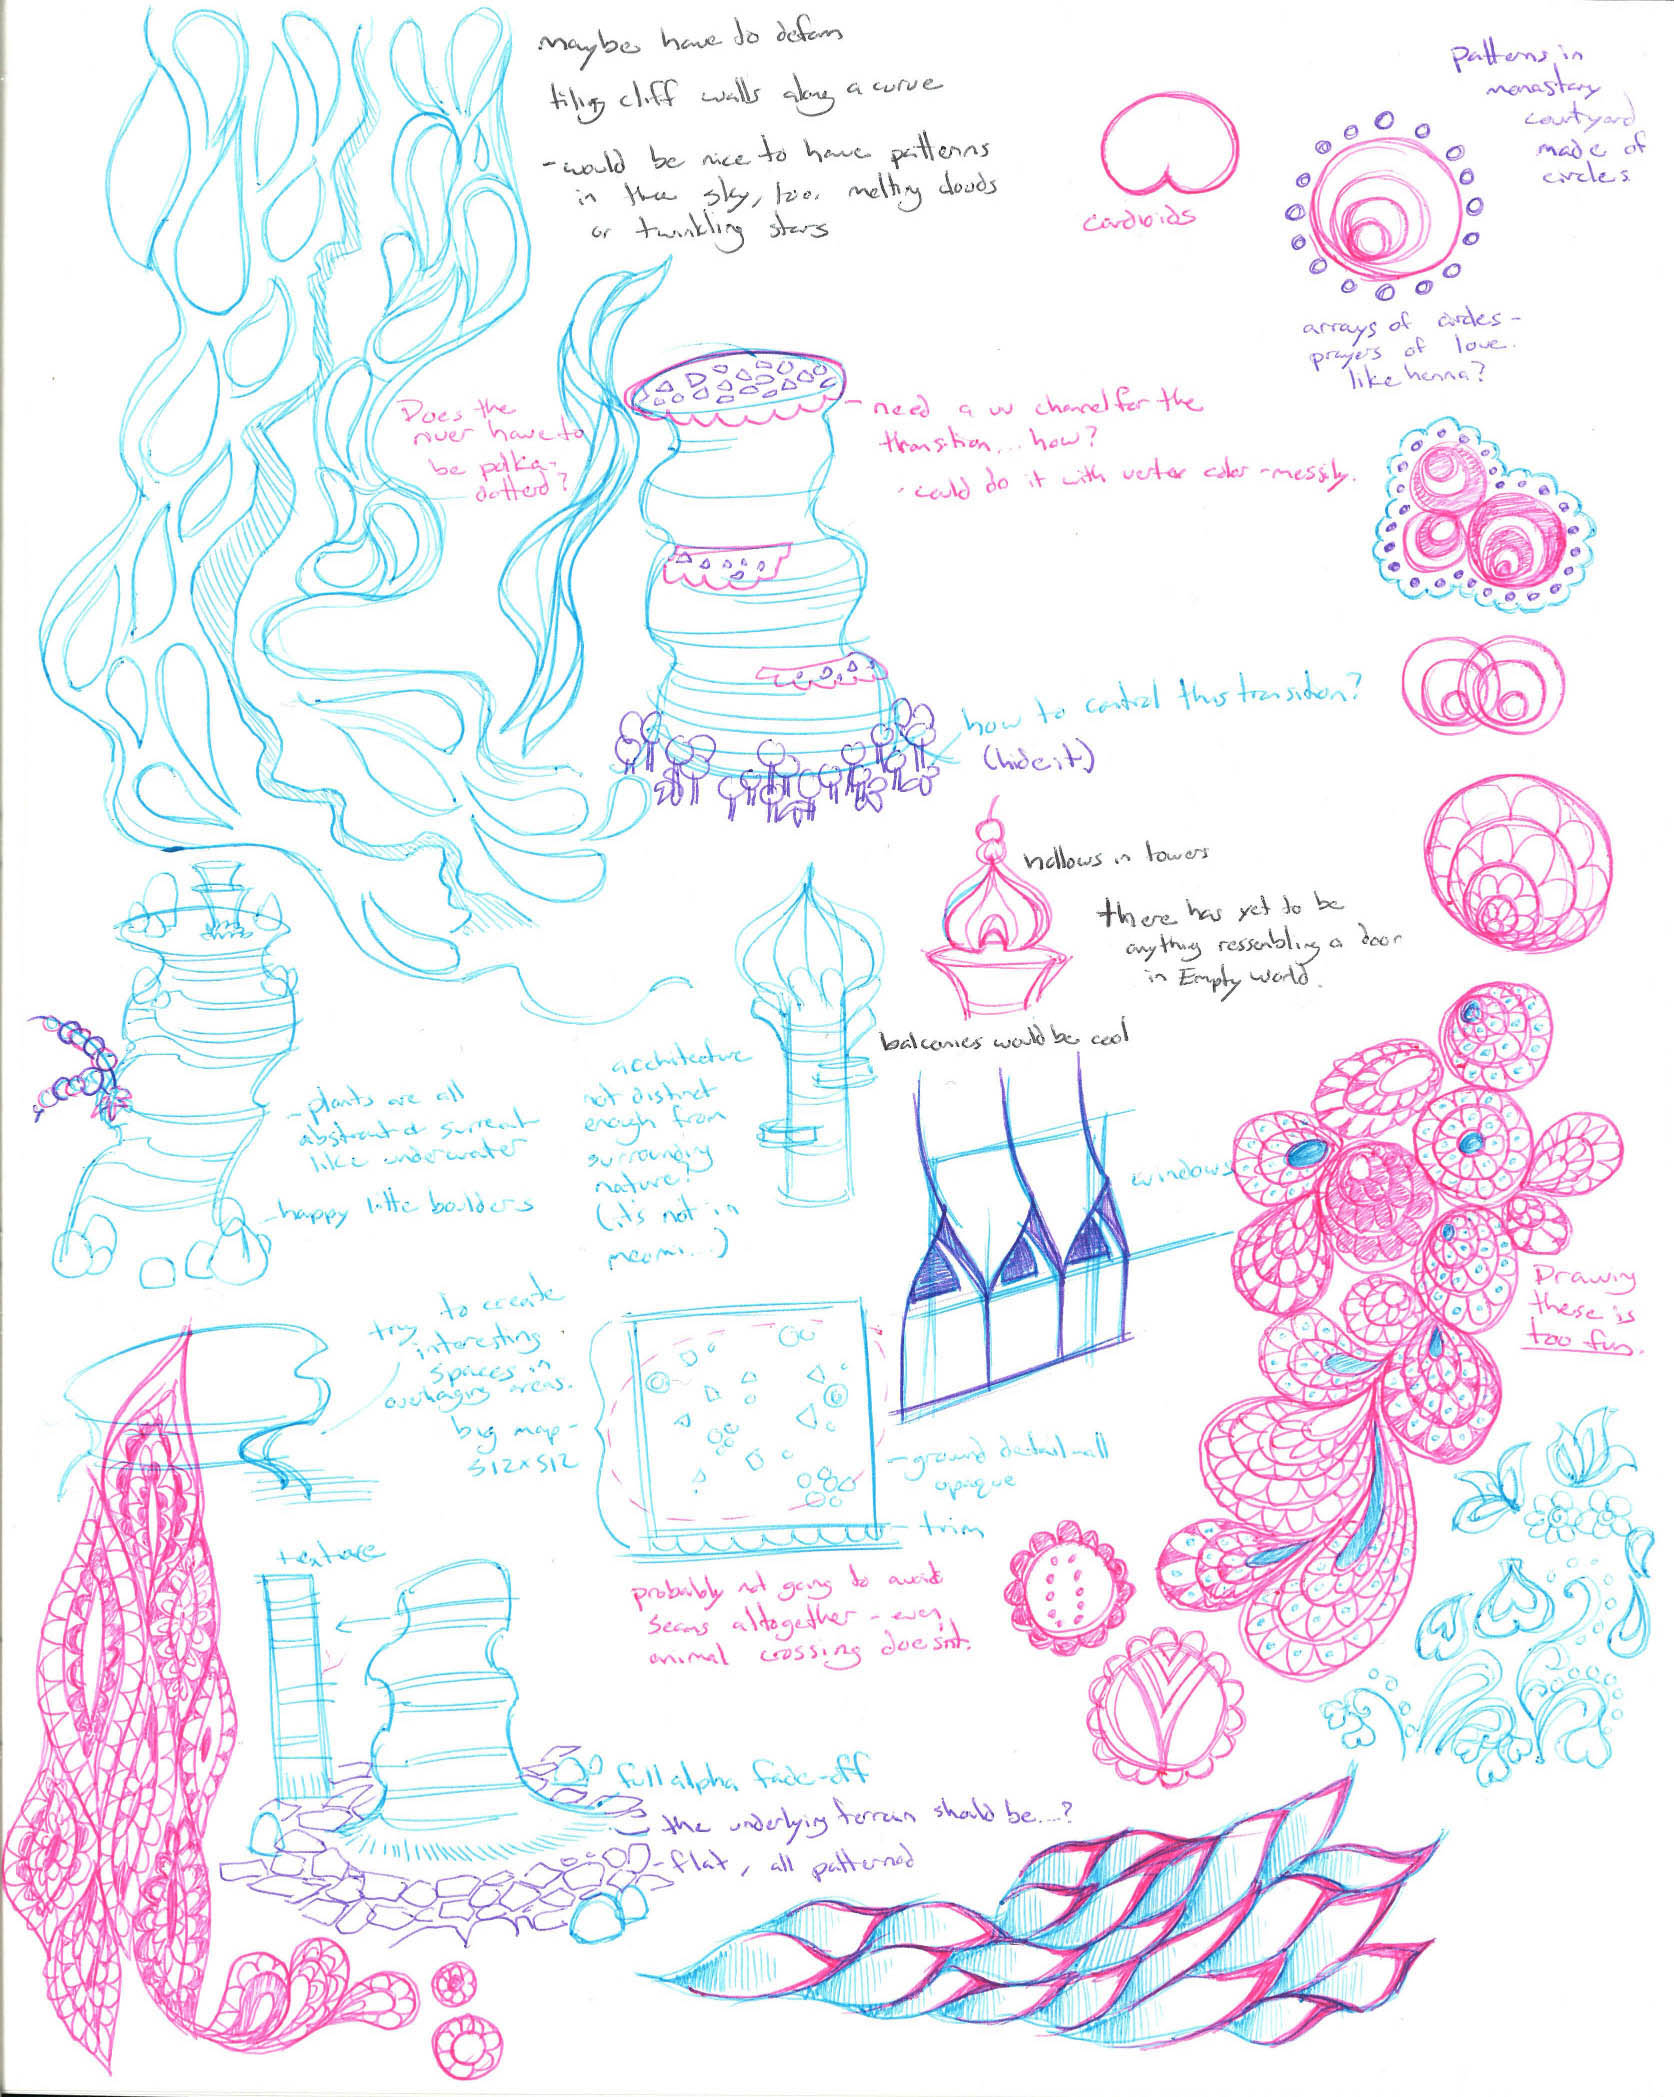 maybe have to deform
tiling cliff walls along a curve
- would be nice to have patterns
in the sky, too. melting clouds
or twinkling stars
cardioids
patterns in
monastary
courtyard
made of
circles
arrays of circles -
prayers of love.
like henna?
Does the
river have to
be polka-
dotted?
- need a uv channel for the
transition... how?
- could do it with vertex color - messily.
how to control this transition?
(hide it)
hollows in towers
there has yet to be
anything ressembling a door
in Empty world.
balconies would be cool
windows
architecture
not distinct
enough from
surrounding
nature?
(it's not in
meomi...)
- plants are all
abstract & surreal
like underwater
- happy little boulders
Drawing
these is
too fun.
try to create
interesting
spaces in
overhanging areas.
big map -
512x512
- ground detail - all
opaque
- trim
probably not going to avoid
seams altogether - even
animal crossing doesn't.
texture
full alpha fade-off
the underlying terrain should be....?
- flat, all patterned